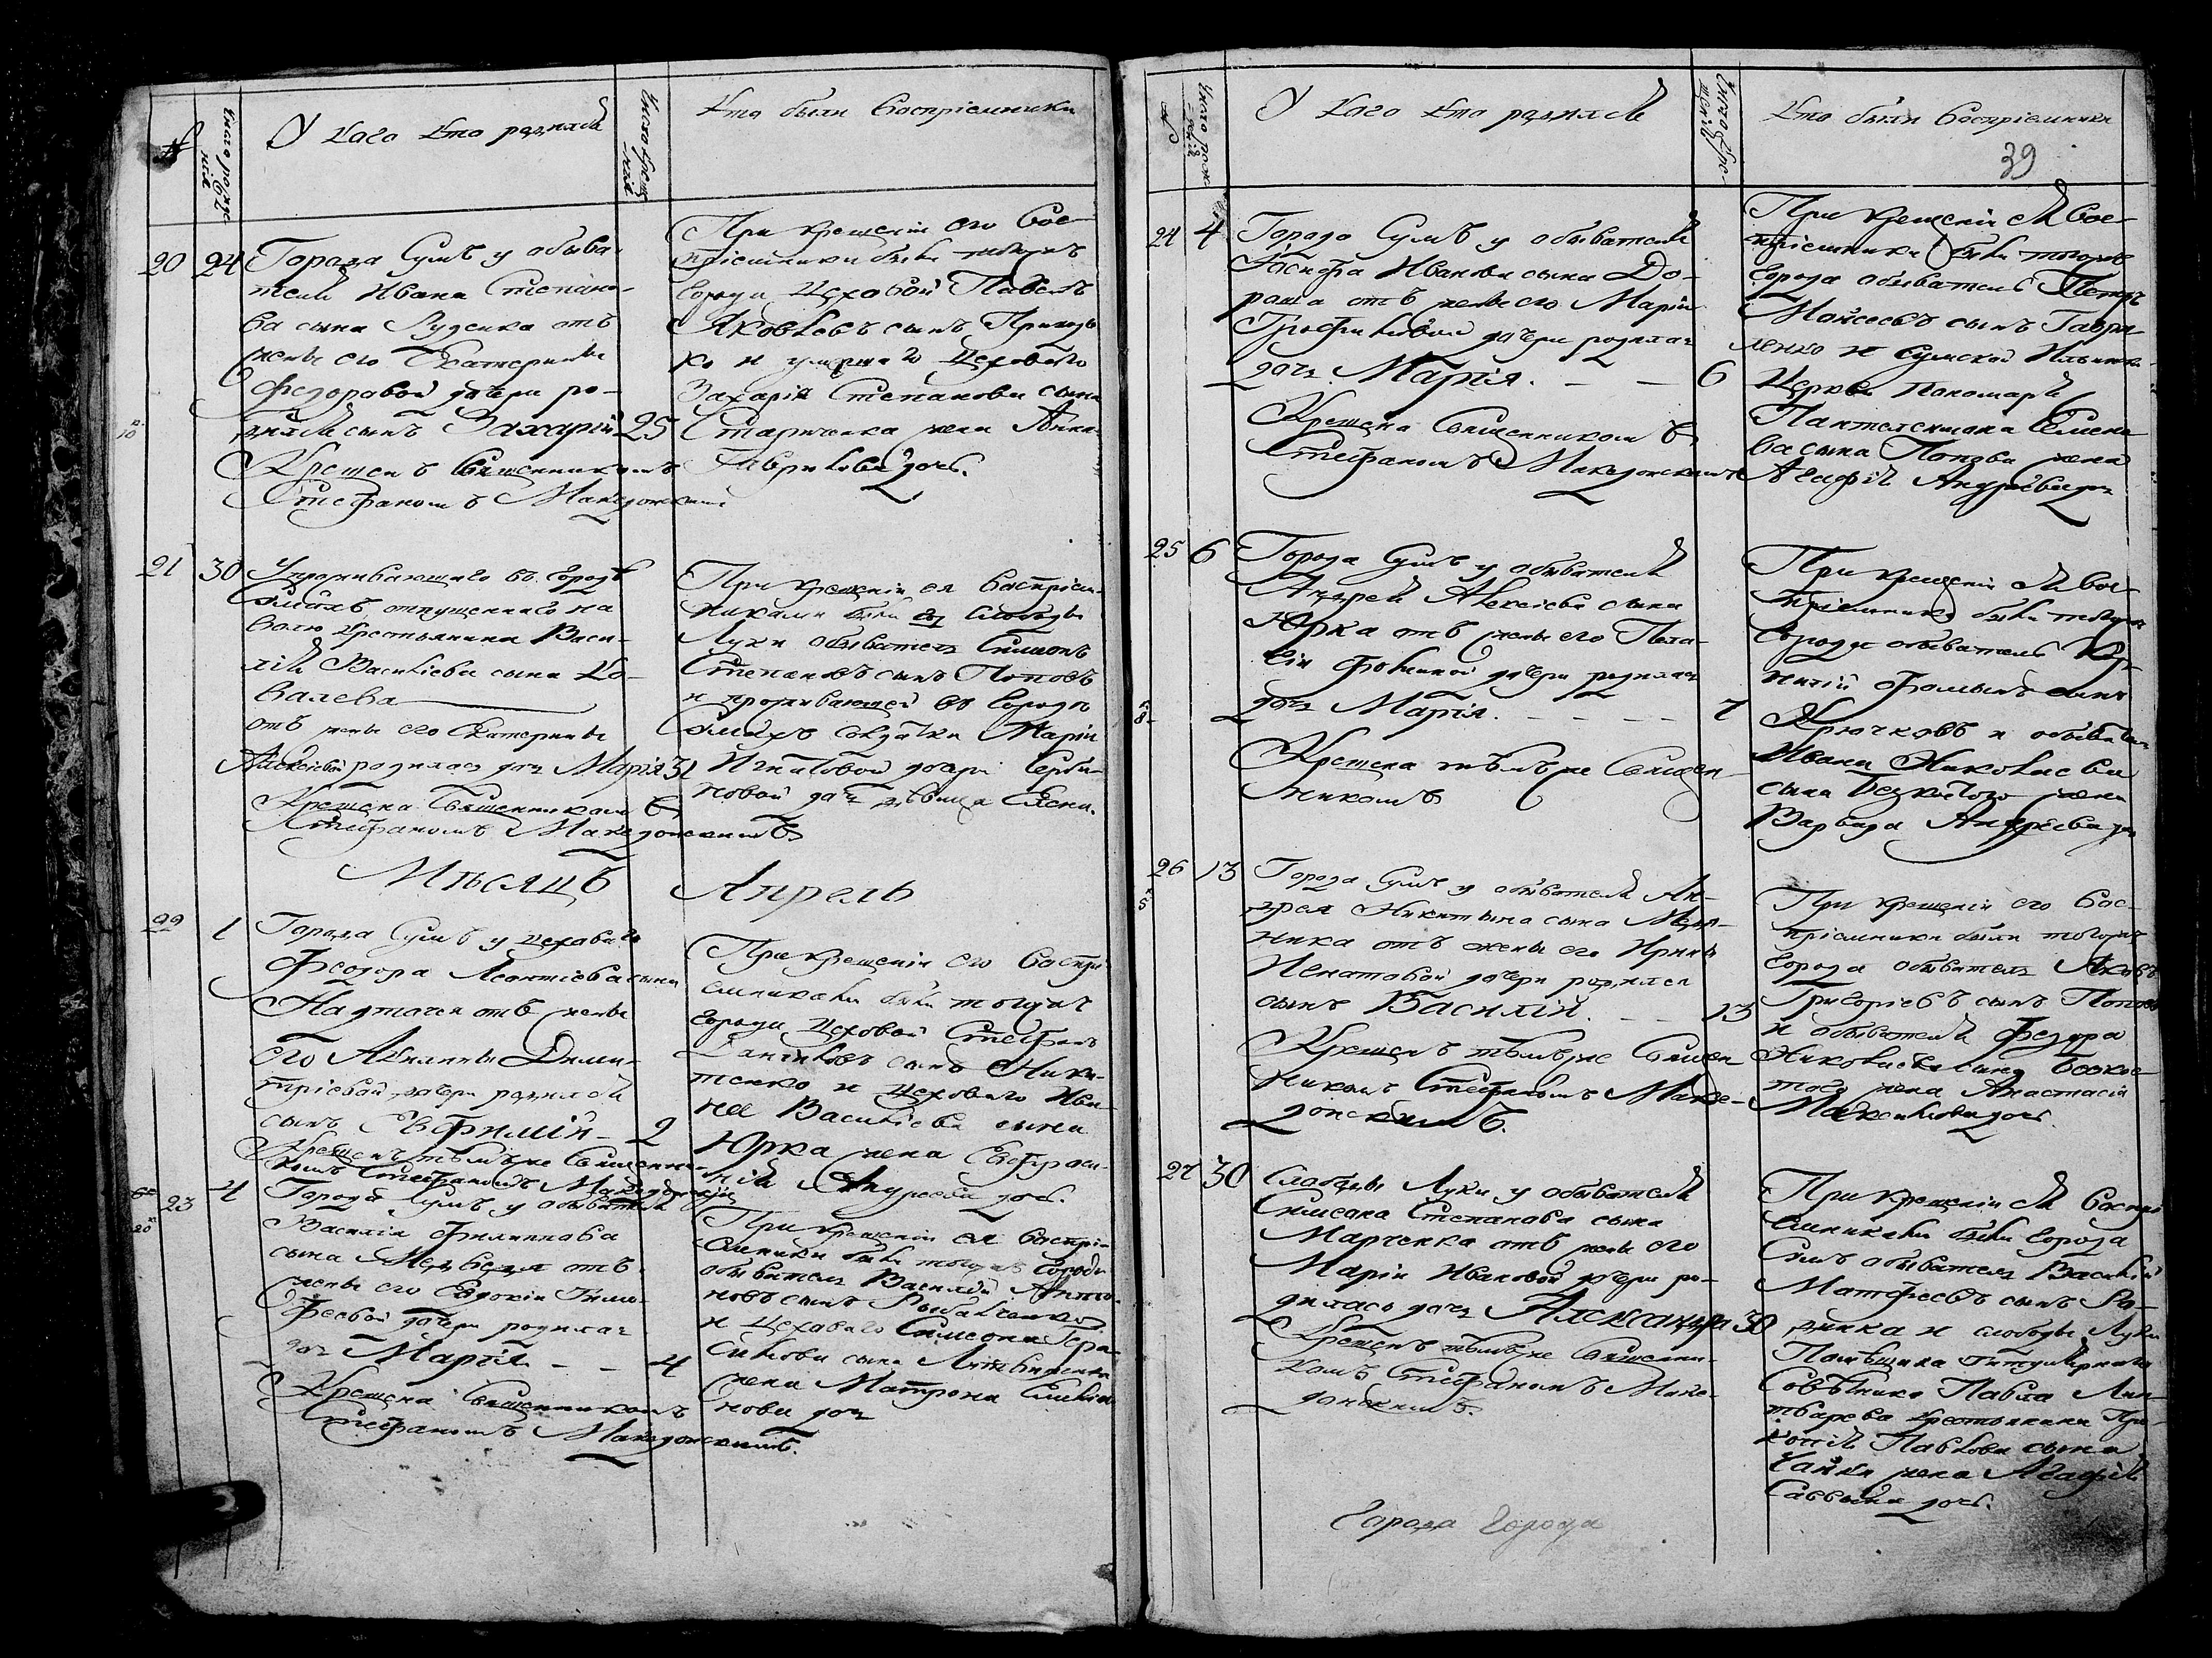 №
Число рожде
нія
У каго кто родился
Число креще
нія
Кто были Воспріемники
20 24 Города Сумъ у обыва-
теля Ивана Степано-
ва сына Руденка отъ
жены его Екатерины
Федоровой дочери ро-
дился сынъ Захарій 25
Крещенъ Священникомъ
Стефаномъ Македонскимъ
При крещеніи его Вос-
пріемники были тогожъ
Города Цеховой Павелъ
Яковлевъ сынъ Приходь
ко и умершаго Цехового
Захарія Степанова сына
Старченка жена Анна
Гаврилова дочь.
21 30 У проживающаго въ Городѣ
Сумахъ отпущеннаго на
волю крестьянина Васи-
лія Васильева сына Ко-
валева
отъ жены его Екатерины
Алексѣевой родилась дочь Марія 31
Крещена Священникомъ
Стефаномъ Македонскимъ
При крещеніи ея Воспріем-
никами были слободы
Луки обыватель Симонъ
Степановъ сынъ Поповъ
и проживающей въ Городѣ
Сумахъ солдатки Маріи
Игнатовой дочери Серби-
новой дочь дѣвица Елена.
Мѣсяцъ Апрель
22 1 Города Сумъ у цехового
Феодора Леонтіева сына
Надточея отъ жены
его Акилины Дими-
тріевой дочери родился
сынъ Евфимій 2
Крещенъ тѣмъ же Священни-
комъ Стефаномъ Македонскимъ
При крещеніи его Воспрі-
емниками были тогожъ
Города Цеховой Стефанъ
Даниловъ сынъ Ники-
тенко и Цехового Ива-
на Васильева сына
Юрка жена Евфроси-
нія Андреева дочь.
23 4 Города Сумъ у обывателя
Василія Филиппова
сына Медведя отъ
жены его Евдокіи Тимо-
феевой дочери родилась
дочь Марія 4
Крещена Священникомъ
Стефаномъ Македонскимъ.
При крещеніи ея Воспрі-
емники были тогожъ Города
обыватель Василій Анто-
новъ сынъ Рыбальченко
и Цехового Симеона Гера-
симова сына Литвиненка
жена Матрона Емелья-
нова дочь
№
Число рож
денія
У каго кто родился
Число Кре-
щенія
Кто были Воспріемники
39
24 4 Города Сумъ у обывателя
Іосифа Иванова сына До-
роша отъ жены его Маріи
Трофимовой дочери родилась
дочь Марія. 6
Крещена Священникомъ
Стефаномъ Македонскимъ
При крещеніи ея Вос-
пріемники были тогожъ
Города обыватель Петръ
Мойсеевъ сынъ Гаври-
ленко и Сумской Ильинск
Церкви Пономаря
Пантелеимона Семено
ва сына Попова жена
Агафія Андрѣева дочь
25 6 Города Сумъ у обывателя
Андрея Алексіева сына
Юрка отъ жены его Пела-
гіи Фоминой дочери родилась
дочь Марія. 7
Крещена тѣмъ же Священ-
никомъ
При крещеніи ея Вос-
пріемники были тогожъ
Города обыватель
Фоминъ сынъ
Крючковъ и обывателя
Ивана Николаева
сына жена
Варвара Андрѣева дочь
26 13 Города Сумъ у обывателя Ан-
дрея Никитина сына Мель-
ника отъ жены его Ирины
Игнатовой дочери родился
сынъ Василій. 13
Крещенъ тѣмъ же Священ
никомъ Стефаномъ Маке-
донскимъ.
При крещеніи его Вос-
пріемники были тогожъ
Города обыватель Яковъ
Григоріевъ сынъ Поповъ
и обывателя Федора
Николаева сына
жена Анастасія
Максимова дочь.
27 30 Слободы Луки у обывателя
Симеона Степанова сына
Марченка отъ жены его
Маріи Ивановой дочери ро-
дилась дочь Александра 30
Крещенъ тѣмъ же Священни-
комъ Стефаномъ Маке-
донскимъ.
При крещеніи ея Воспрі
емниками были Города
Сумъ обыватель Василій
Матфеевъ сынъ Ра-
дника и слободы Луки
Помѣщика титулярнаго
Совѣтника Павла Лин-
тварева крестьянина Про-
копія Павлова сына
Чайки жена Агафія
Саввина дочь.
Города Города